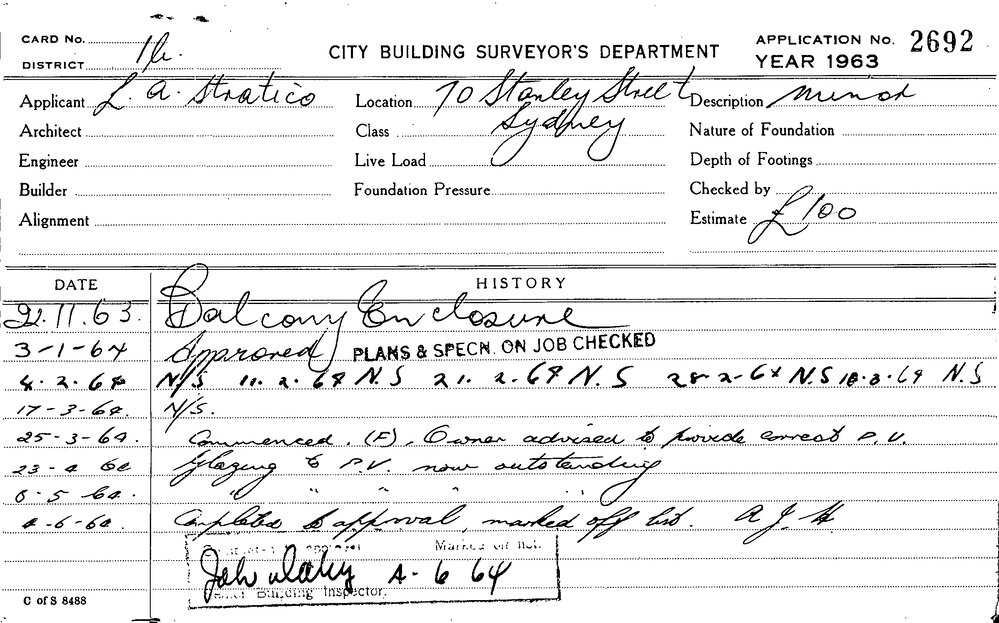 CARD No.
DISTRICT 1b.
CITY BUILDING SURVEYOR'S DEPARTMENT
APPLICATION No. 2692
YEAR 1963
Applicant L. A. Stratico
Location 70 Stanley Street
Sydney
Description Minor
Architect
Class
Nature of Foundation
Engineer
Live Load
Depth of Footings
Builder
Foundation Pressure
Checked by
Alignment
Estimate £100
DATE HISTORY
21.11.63. Balcony Enclosure
3-1-64 Approved PLANS & SPECN. ON JOB CHECKED
4.2.64 N/S 11.2.64 N.S 21.2.64 N.S 28-2-64 N.S 18-3-64 N.S
17-3-64. N/S.
25-3-64. Commenced. (F). Owner advised to provide correct P.V.
23-4 64 Glazing to P.V. now outstanding
8.5 64. " " " " "
4-6-64. Completed to approval, marked off list. A J H
Marked off list.
4-6 64
Building Inspector.
C of S 8488